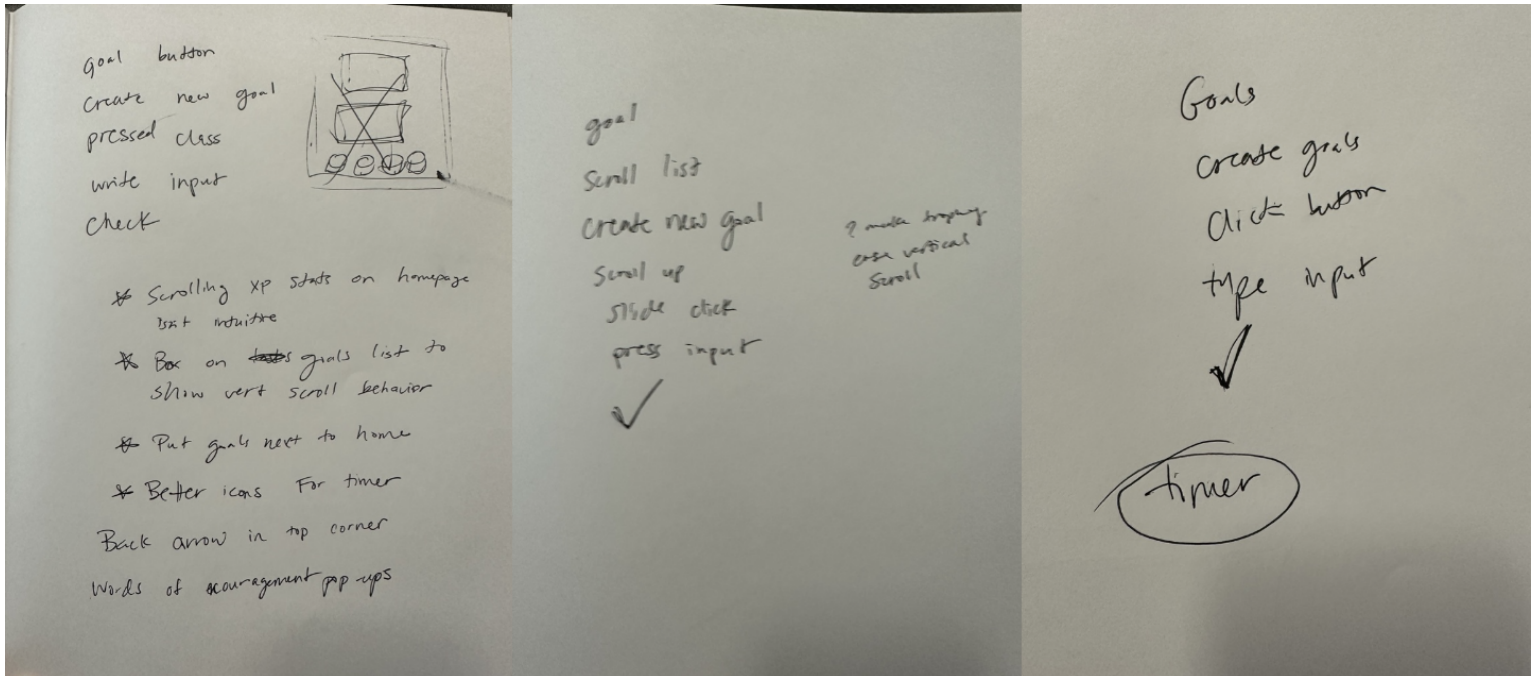 goal button
create new goal
pressed class
write input
check
* Scrolling xp stats on homepage
isnt intuitive
* Box on goals list to
show vert scroll behavior
* Put goals next to home
* Better icons For timer
Back arrow in top corner
Words of pop-ups
goal
Scroll list
create new goal
scroll up
slide click
press input
✓
? make
vertical
scroll
Goals
create goals
Click button
type input
✓
timer